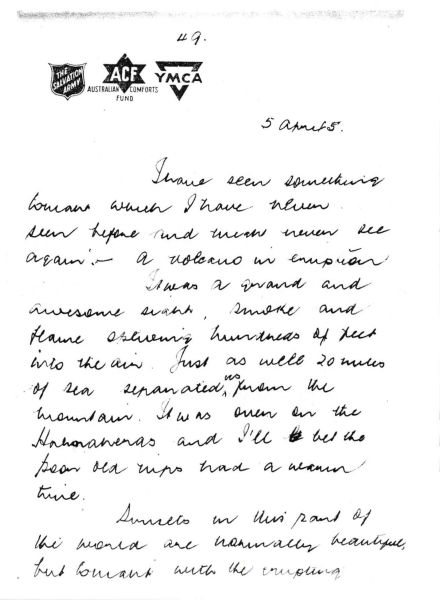 49.
THE SALVATION ARMY
ACF
AUSTRALIAN COMFORTS FUND
YMCA
5 April 5.
I have seen something
tonight which I have never
seen before and might never see
again :- A volcano in eruption
It was a grand and
awesome sight, smoke and
flame spewing hundreds of feet
into the air. Just as well 20 miles
of sea separated us from the
mountain. It was over on the
Halmaheras and I'll bet the
poor old nips had a warm
time.
Sunsets in this part of
the world are normally beautiful,
but tonight with the erupting